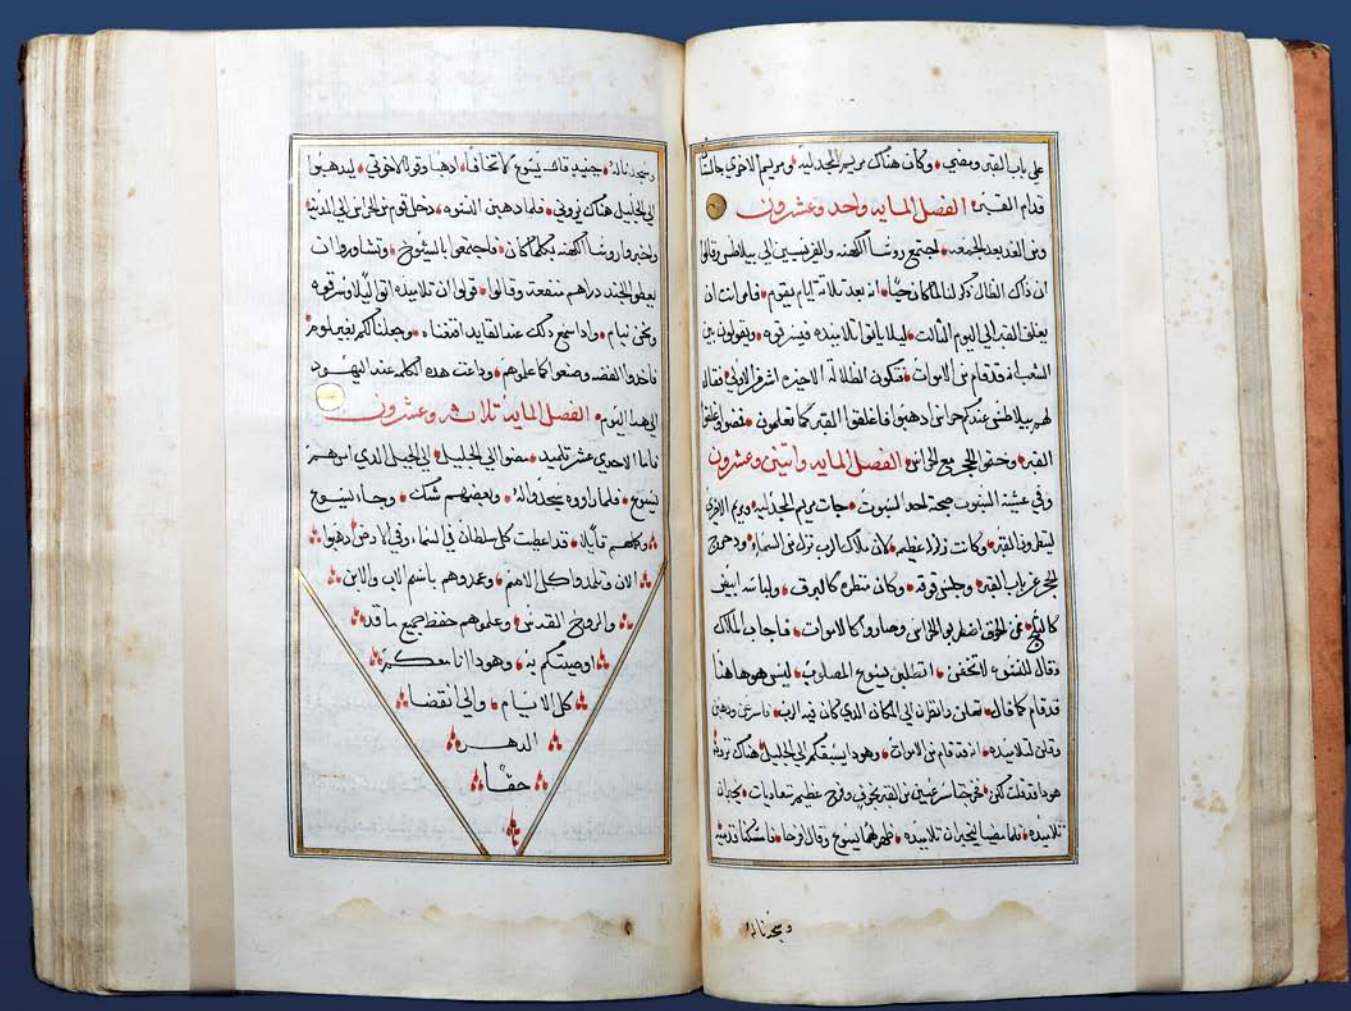 علي باب القبر ومضي وكان هناك مريم المجدليه ومريم الاخري جالستا
قدام القبر الفصل المايه واحد وعشرون
ومن الغد بعد الجمعه اجتمع روسا الكهنه والفريسيين الي بيلاطس وقالوا
ان ذاك الضال ذكر لنا لما كان حيا انه بعد ثلاثة ايام يقوم فامر انت ان
يغلق القبر الي اليوم الثالت ليلا ياتوا تلاميذه فيسرقوه ويقولون في
الشعب انه قد قام من الاموات فتكون الظلاله الاخيره اشر من الاولي فقال
لهم بيلاطس عندكم حراس ادهبوا فاغلقوا القبر كما تعلمون فمضوا واغلقوا
القبر وختموا الحجر مع الحراس الفصل المايه واتنين وعشرون
وفي عشية السبوت صبحة احد السبوت جات مريم المجدليه ومريم الاخري
لينظرون القبر وكانت زلزله عظيمه لان ملاك الرب نزل من السماء ودحرج
الحجر عن باب القبر وجلس فوقه وكان منظره كالبرق ولباسه ابيض
كالثلج فمن الخوف اضطربوا الحراس وصاروا كالاموات فاجاب الملاك
وقال للنسوه لا تخفن اتطلبن يسوع المصلوب ليس هو هاهنا
قد قام كما قال تعالن وانظرن الي المكان الدي كان فيه الرب فاسرعن ودهبن
وقلن لتلاميده انه قد قام من الاموات وهودا يسبقكم الي الجليل هناك ترونه
هودا قد قلت لكن فخرجتا مسرعتين من القبر بخوف وفرح عظيم متعاديات يخبران
تلاميده فلما مضيا ليخبران تلاميده ظهر لهما يسوع وقال افرحا فامسكتا قدميه
وسجدتا له
وسجدتا له حينيد قال يسوع لا تخافا ادهبا وقولا لاخوتي ليدهبوا
الي الجليل هناك يروني فلما دهبن النسوه دخل قوم من الحراس الي المدينه
واخبروا روسا الكهنه بكلما كان فاجتمعوا بالشيوخ وتشاوروا ان
يعطوا الجند دراهم مقنعة وقالوا قولوا ان تلاميده اتوا ليلا وسرقوه
ونحن نيام وادا سمع دلك عند القايد اقنعناه وجعلناكم بغير لوم
فاخدوا الفضه وصنعوا كما علموهم وداعت هده الكلمه عند اليهود
الي هدا اليوم الفصل المايه تلاثه وعشرون
فاما الاحدي عشر تلميد مضوا الي الجليل الي الجبل الدي امرهم
يسوع فلما راووه سجدوا له وبعضهم شك وجاء يسوع
وكلمهم قايلا قد اعطيت كل سلطان في السماء وفي الارض ادهبوا
الان وتلمدوا كل الامم وعمدوهم باسم الاب والابن
والروح القدس وعلموهم حفظ جميع ما قد
اوصيتكم به وهودا انا معكم
كل الايام والي انقضا
الدهر
حقا